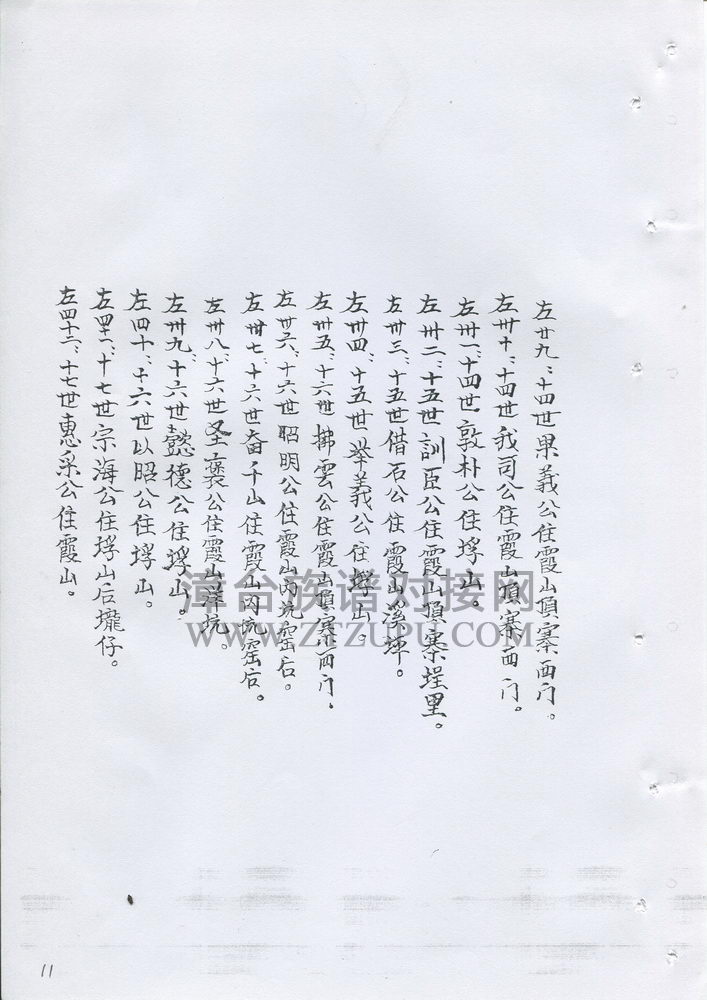 左廿九、十四世果義公住霞山頂寨西门。
左卅十、十四世我司公住霞山頂寨西门。
左卅一、十四世敦朴公住垺山。
左卅二、十五世訓臣公住霞山頂寨埕里。
左卅三、十五世借石公住霞山溪坪。
左卅四、十五世举義公住垺山。
左卅五、十六世拂雲公住霞山頂寨西门。
左卅六、十六世昭明公住霞山内坑窑后。
左卅七、十六世奋千山住霞山内坑窑后。
左卅八、十六世圣褒公住霞山洋坑。
左卅九、十六世懿德公住垺山。
左四十、十六世以昭公住垺山。
左四十一、十七世宗海公住垺山后壠仔。
左四十二、十七世惠采公住霞山。
漳台族谱对接网
WWW.ZTZUPU.COM
11